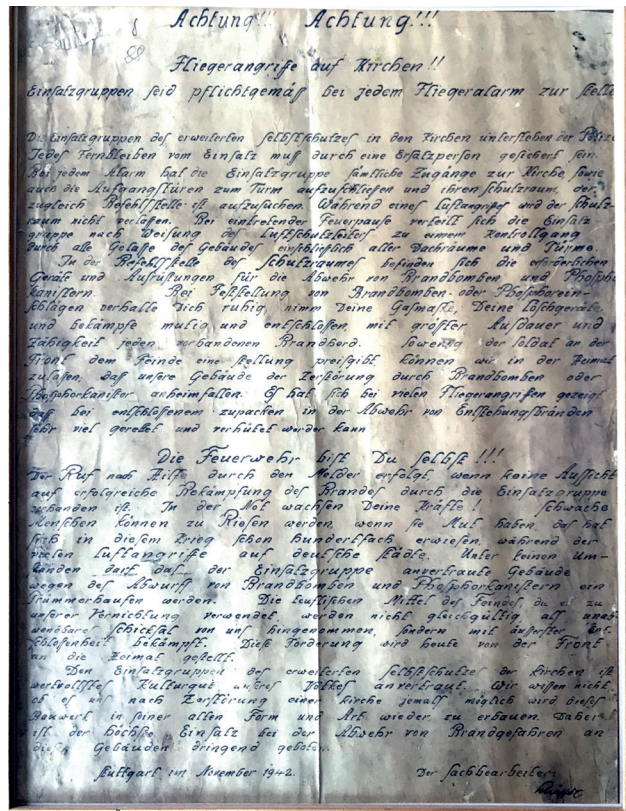 Achtung!!! Achtung!!!
Fliegerangriffe auf Kirchen!!
Einsatzgruppen seid pflichtgemäß bei jedem Fliegeralarm zur Stelle
Die Einsatzgruppen des erweiterten Selbstschutzes in den Kirchen unterstehen der Polizei
Jedes Fernbleiben vom Einsatz muß durch eine Ersatzperson gesichert sein.
Bei jedem Alarm hat die Einsatzgruppe sämtliche Zugänge zur Kirche sowie
auch die Aufgangstüren zum Turm aufzuschließen und ihren Schutzraum, der
zugleich Befehlsstelle ist aufzusuchen. Während eines Luftangriffes wird der Schutz-
raum nicht verlassen. Bei eintretender Feuerpause verteilt sich die Einsatz-
gruppe nach Weisung des Luftschutzleiters zu einem Kontrollgang
durch alle Gelasse des Gebäudes einschließlich aller Dachräume und Türme.
In der Befehlsstelle des Schutzraumes befinden sich die erforderlichen
Geräte und Ausrüstungen für die Abwehr von Brandbomben und Phosphor
kanistern. Bei Feststellung von Brandbomben- oder Phosphorein-
schlägen verhalte Dich ruhig, nimm Deine Gasmaske, Deine Löschgeräte
und bekämpfe mutig und entschlossen, mit größter Ausdauer und
Zähigkeit jeden vorhandenen Brandherd. Sowenig der Soldat an der
Front dem Feinde eine Stellung preisgibt können wir in der Heimat
zulassen, daß unsere Gebäude der Zerstörung durch Brandbomben oder
Phosphorkanister anheimfallen. Es hat sich bei vielen Fliegerangriffen gezeigt
daß bei entschlossenem zupacken in der Abwehr von Entstehungsbränden
sehr viel gerettet und verhütet werden kann
Die Feuerwehr bist Du selbst!!!
Der Ruf nach Hilfe durch den Melder erfolgt, wenn keine Aussicht
auf erfolgreiche Bekämpfung des Brandes durch die Einsatzgruppe
vorhanden ist. In der Not wachsen Deine Kräfte! Schwache
Menschen können zu Riesen werden, wenn sie Mut haben, das hat
sich in diesem Krieg schon hundertfach erwiesen, während der
vielen Luftangriffe auf deutsche Städte. Unter keinen Um-
ständen darf das der Einsatzgruppe anvertraute Gebäude
wegen des Abwurfs von Brandbomben und Phosphorkanistern ein
Trümmerhaufen werden. Die teuflischen Mittel des Feindes, die er zu
unserer Vernichtung verwendet, werden nicht gleichgültig als unab-
wendbares Schicksal von uns hingenommen, sondern mit äußerster Ent-
schlossenheit bekämpft. Diese Forderung wird heute von der Front
an die Heimat gestellt.
Den Einsatzgruppen des erweiterten Selbstschutzes der Kirchen ist
wertvollstes Kulturgut unseres Volkes anvertraut. Wir wissen nicht,
ob es uns nach Zerstörung einer Kirche jemals möglich wird dieses
Bauwerk in seiner alten Form und Art wieder zu erbauen. Daher
ist der höchste Einsatz bei der Abwehr von Brandgefahren an
diesen Gebäuden dringend geboten.
Stuttgart im November 1942. Der Sachbearbeiter: